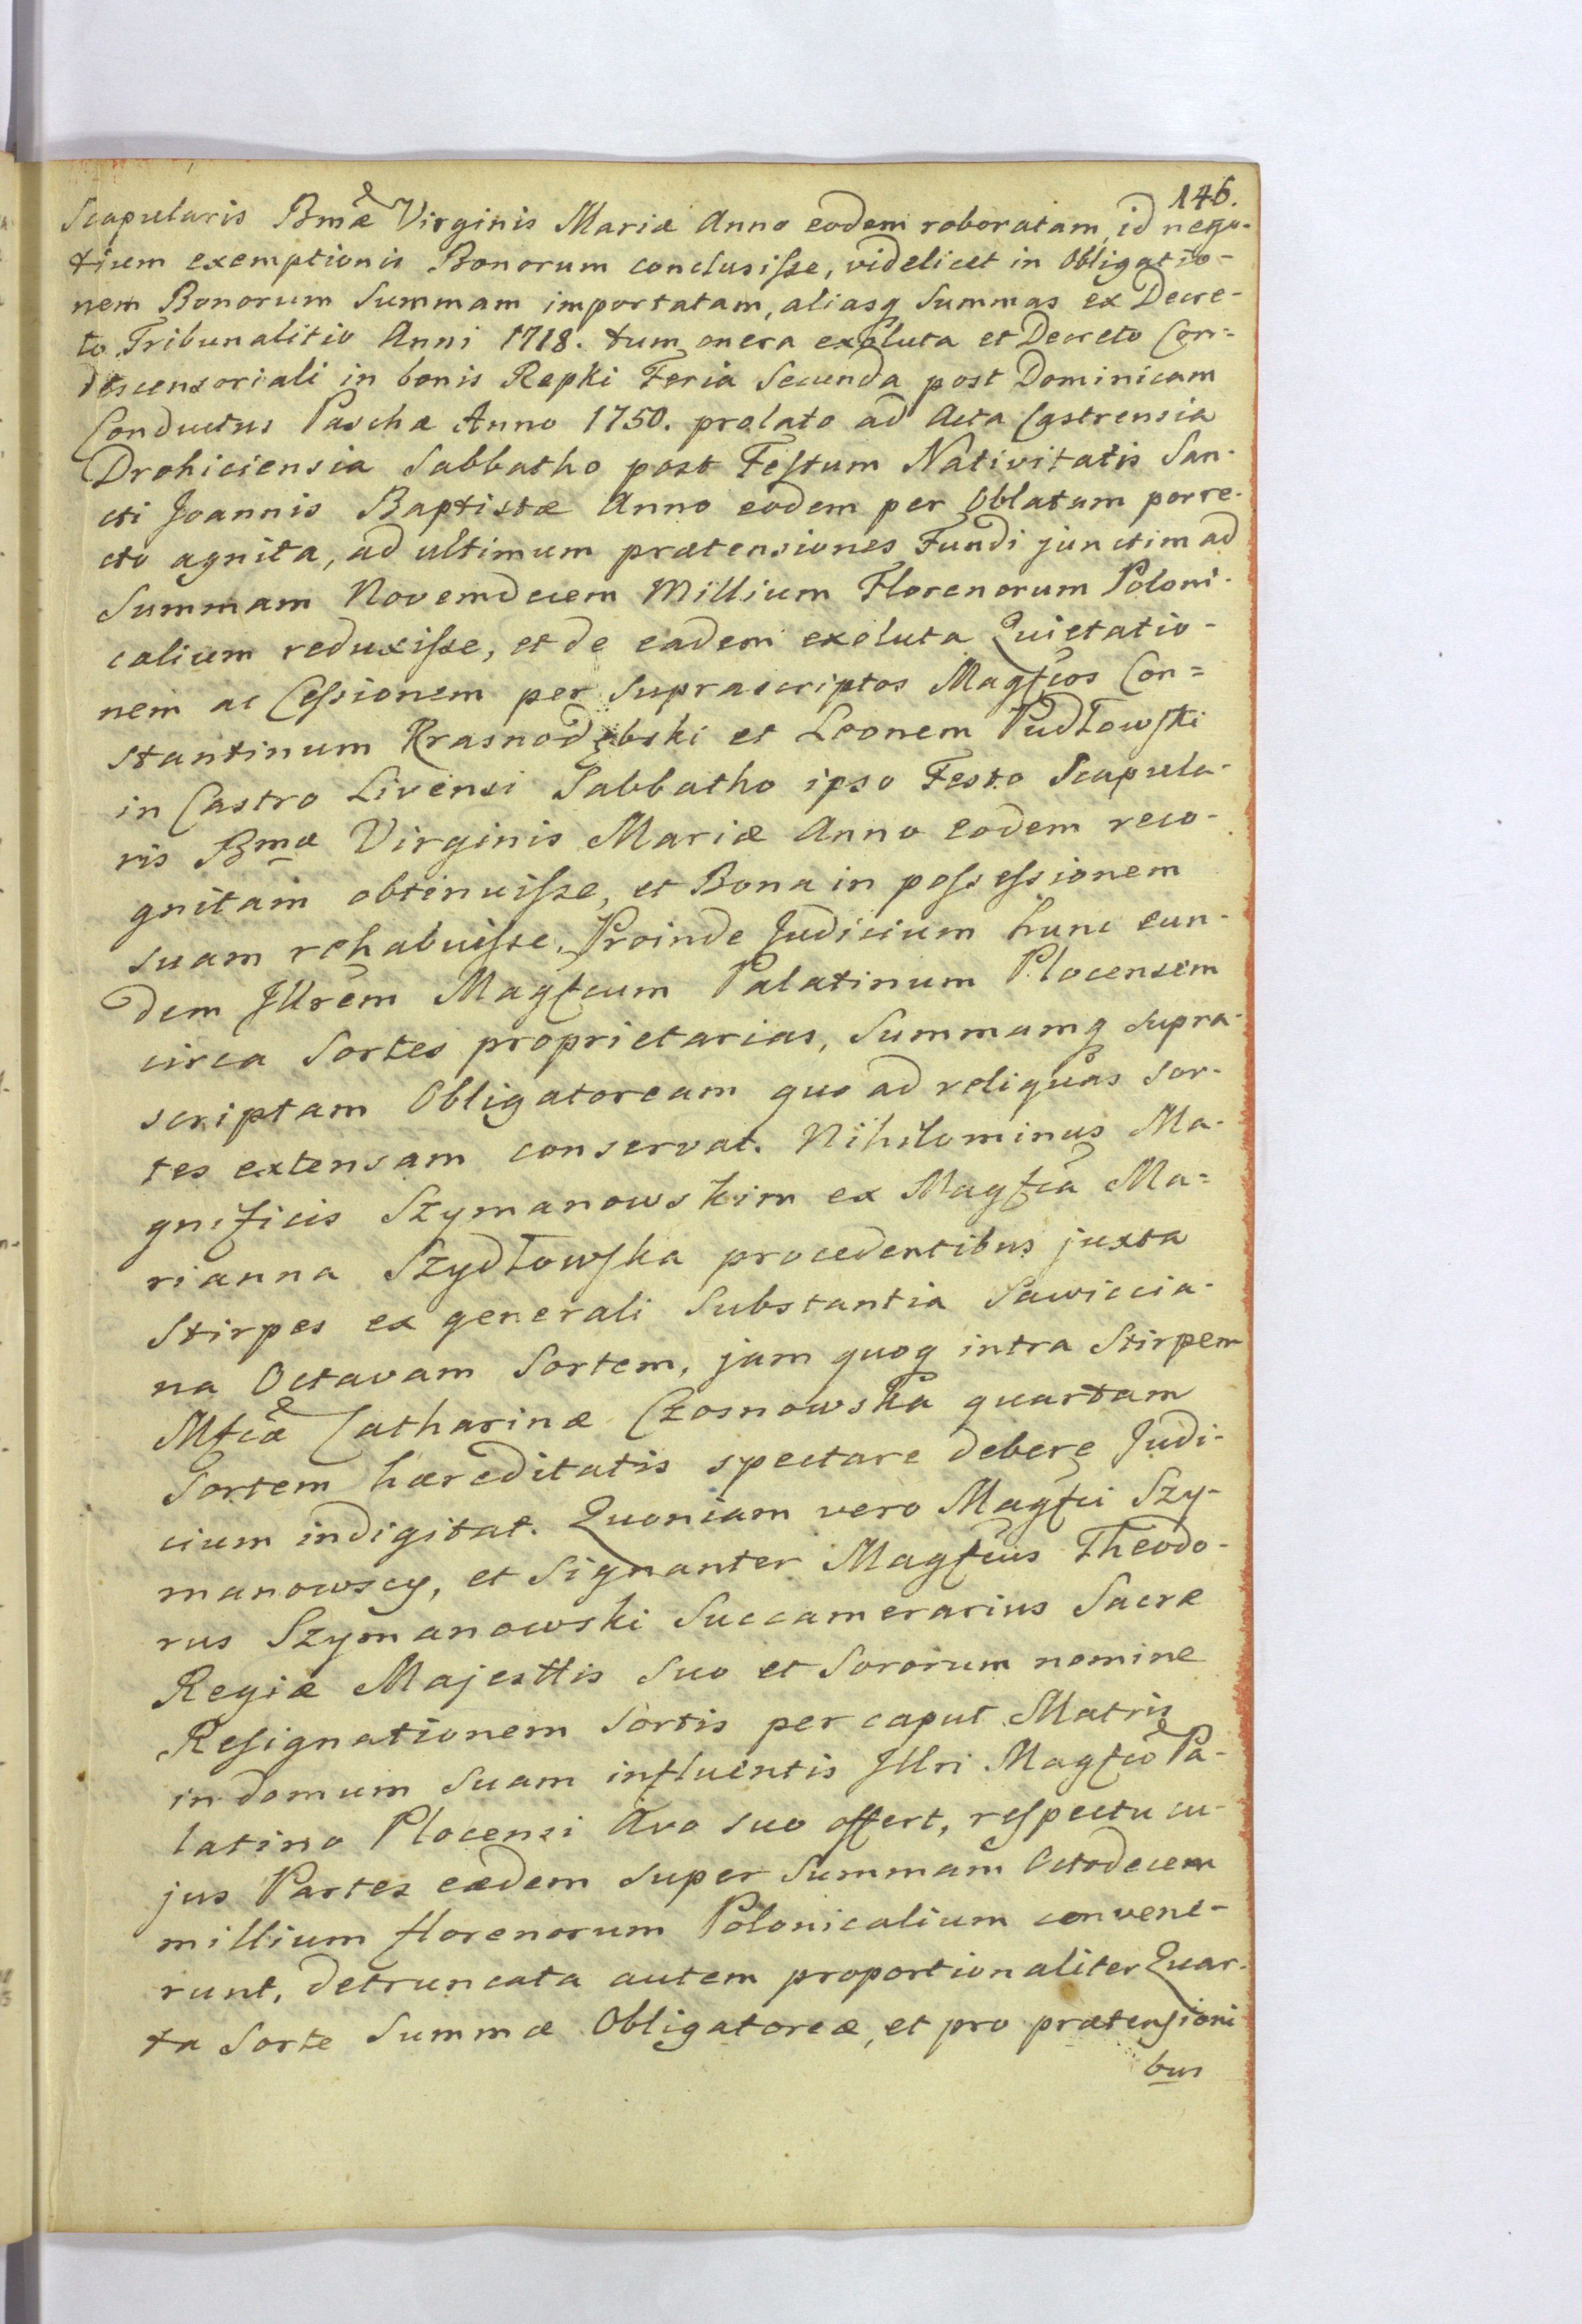 146.
Scapularis Bmæ Virginis Mariæ Anno eodem roboratam, id nego-
tium exemptionis Bonorum conclusiſse, videlicet in Obligatio-
nem Bonorum Summam importatam, aliasq Summas ex Decre-
to Tribunalitio Anni 1718. tum onera exoluta et Decreto Con=
descensoriali in bonis Repki Feria Secunda post Dominicam
Conductus Paschæ Anno 1750. prolato ad Acta Castrensia
Drohiciensia Sabbatho post Feſtum Nativitatis San-
cti Joannis Baptistæ Anno eodem per Oblatam porre-
cto agnita, ad ultimum prætensiones Fundi junctim ad
Summam Novemdecem Millium Florenorum Poloni-
calium reduxiſse, et de eadem exoluta Quietatio-
nem ac Ceſsionem per Suprascriptos Magfcos Con=
stantinum Krasnodębski et Leonem Pudłowſki
in Castro Livensi Sabbatho ipso Festo Scapula-
ris Bmæ Virginis Mariæ Anno eodem reco-
gnitam obtinuiſse, et Bona in poſseſsionem
suam rehabuiſse, Proinde Judicium hunc eun-
dem Jllrem Magfcum Palatinum Plocensem
circa Sortes proprietarias, Summamq supra-
scriptam Obligatoream quo ad reliquas sor-
tes extensam conservat. Nihilominus Ma-
gnificis Szymanowskim ex Magfca Ma=
rianna Szydłowſka procedentibus juxta
Stirpes ex generali Substantia Sawiccia-
na Octavam Sortem, jam quoq intra Stirpem
Mfcæ Catharinæ Czosnowska quartam
Sortem hæreditatis spectare debere Judi-
cium indigitat. Quoniam vero Magfci Szy-
manowscy, et Signanter Magfcus Theodo-
rus Szymanowski Succamerarius Sacræ
Regiæ Majesttis Suo et Sororum nomine
Reſignationem Sortis per caput Matris
in domum Suam influentis Jllri Magfco Pa-
latino Plocensi Avo suo offert, reſpectu cu-
jus Partes eædem super Summam Octodecem
millium florenorum Polonicalium convene-
runt, detruncata autem proportionaliter Quar-
ta Sorte Summæ Obligatoreæ, et pro prætenſioni
bus